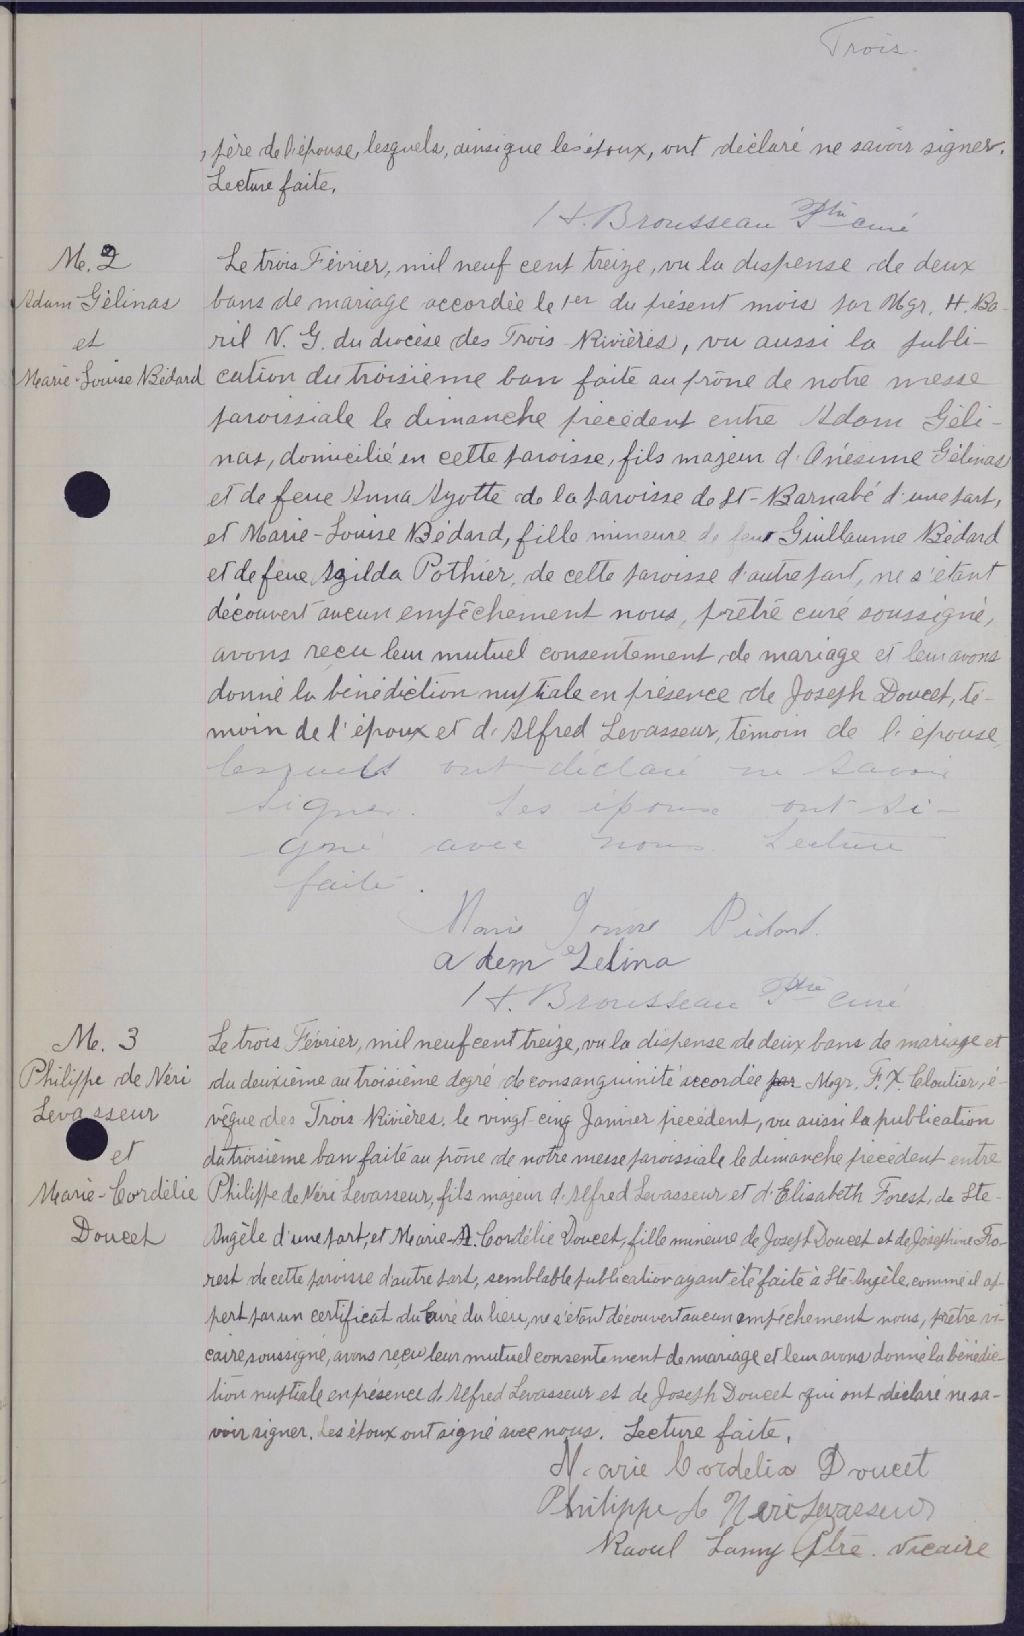 Trois.
, père de l'épouse, lesquels, ainsi que les époux, ont déclaré ne savoir signer.
Lecture faite.
H. Brousseau Ptre curé
M. 2
Adam Gélinas
et
Marie-Louise Bédard
Le trois Février, mil neuf cent treize, vu la dispense de deux
bans de mariage accordée le 1er du présent mois par Mgr. H. Ba-
ril V. G. du diocèse des Trois-Rivières, vu aussi la publi-
cation du troisième ban faite au prône de notre messe
paroissiale le dimanche précédent entre Adam Géli-
nas, domicilié en cette paroisse, fils majeur d'Onésime Gélinas
et de feue Anna Ayotte de la paroisse de St-Barnabé d'une part,
et Marie-Louise Bédard, fille mineure de feu Guillaume Bédard
et de feue Azilda Pothier, de cette paroisse d'autre part, ne s'étant
découvert aucun empêchement nous, prêtre curé soussigné,
avons reçu leur mutuel consentement de mariage et leur avons
donné la bénédiction nuptiale en présence de Joseph Doucet, té-
moin de l'époux et d'Alfred Levasseur, témoin de l'épouse,
lesquels ont déclaré ne savoir
signer. Les époux ont si-
gné avec nous. Lecture
faite.
Marie Louise Bédard.
adem Gelina
H. Brousseau Ptre curé
M. 3
Philippe de Néri
Levasseur
et
Marie-Cordélie
Doucet
Le trois Février, mil neuf cent treize, vu la dispense de deux bans de mariage et
du deuxième au troisième degré de consanguinité accordée par Mgr. F. X. Cloutier, é-
vêque des Trois Rivières, le vingt-cinq Janvier précédent, vu aussi la publication
du troisième ban faite au prône de notre messe paroissiale le dimanche précédent entre
Philippe de Néri Levasseur, fils majeur d'Alfred Levasseur et d'Elisabeth Forest, de Ste-
Angèle d'une part, et Marie-A. Cordélie Doucet, fille mineure de Joseph Doucet et de Joséphine Fo-
rest de cette paroisse d'autre part, semblable publication ayant été faite à Ste-Angèle, comme il ap-
pert par un certificat du Curé du lieu, ne s'étant découvert aucun empêchement nous, prêtre vi-
caire, soussigné, avons reçu leur mutuel consentement de mariage et leur avons donné la bénédic-
tion nuptiale en présence d'Alfred Levasseur et de Joseph Doucet qui ont déclaré ne sa-
voir signer. Les époux ont signé avec nous. Lecture faite.
Marie Cordelia Doucet
Philippe de Neri Levasseur
Raoul Lamy Ptre. vicaire